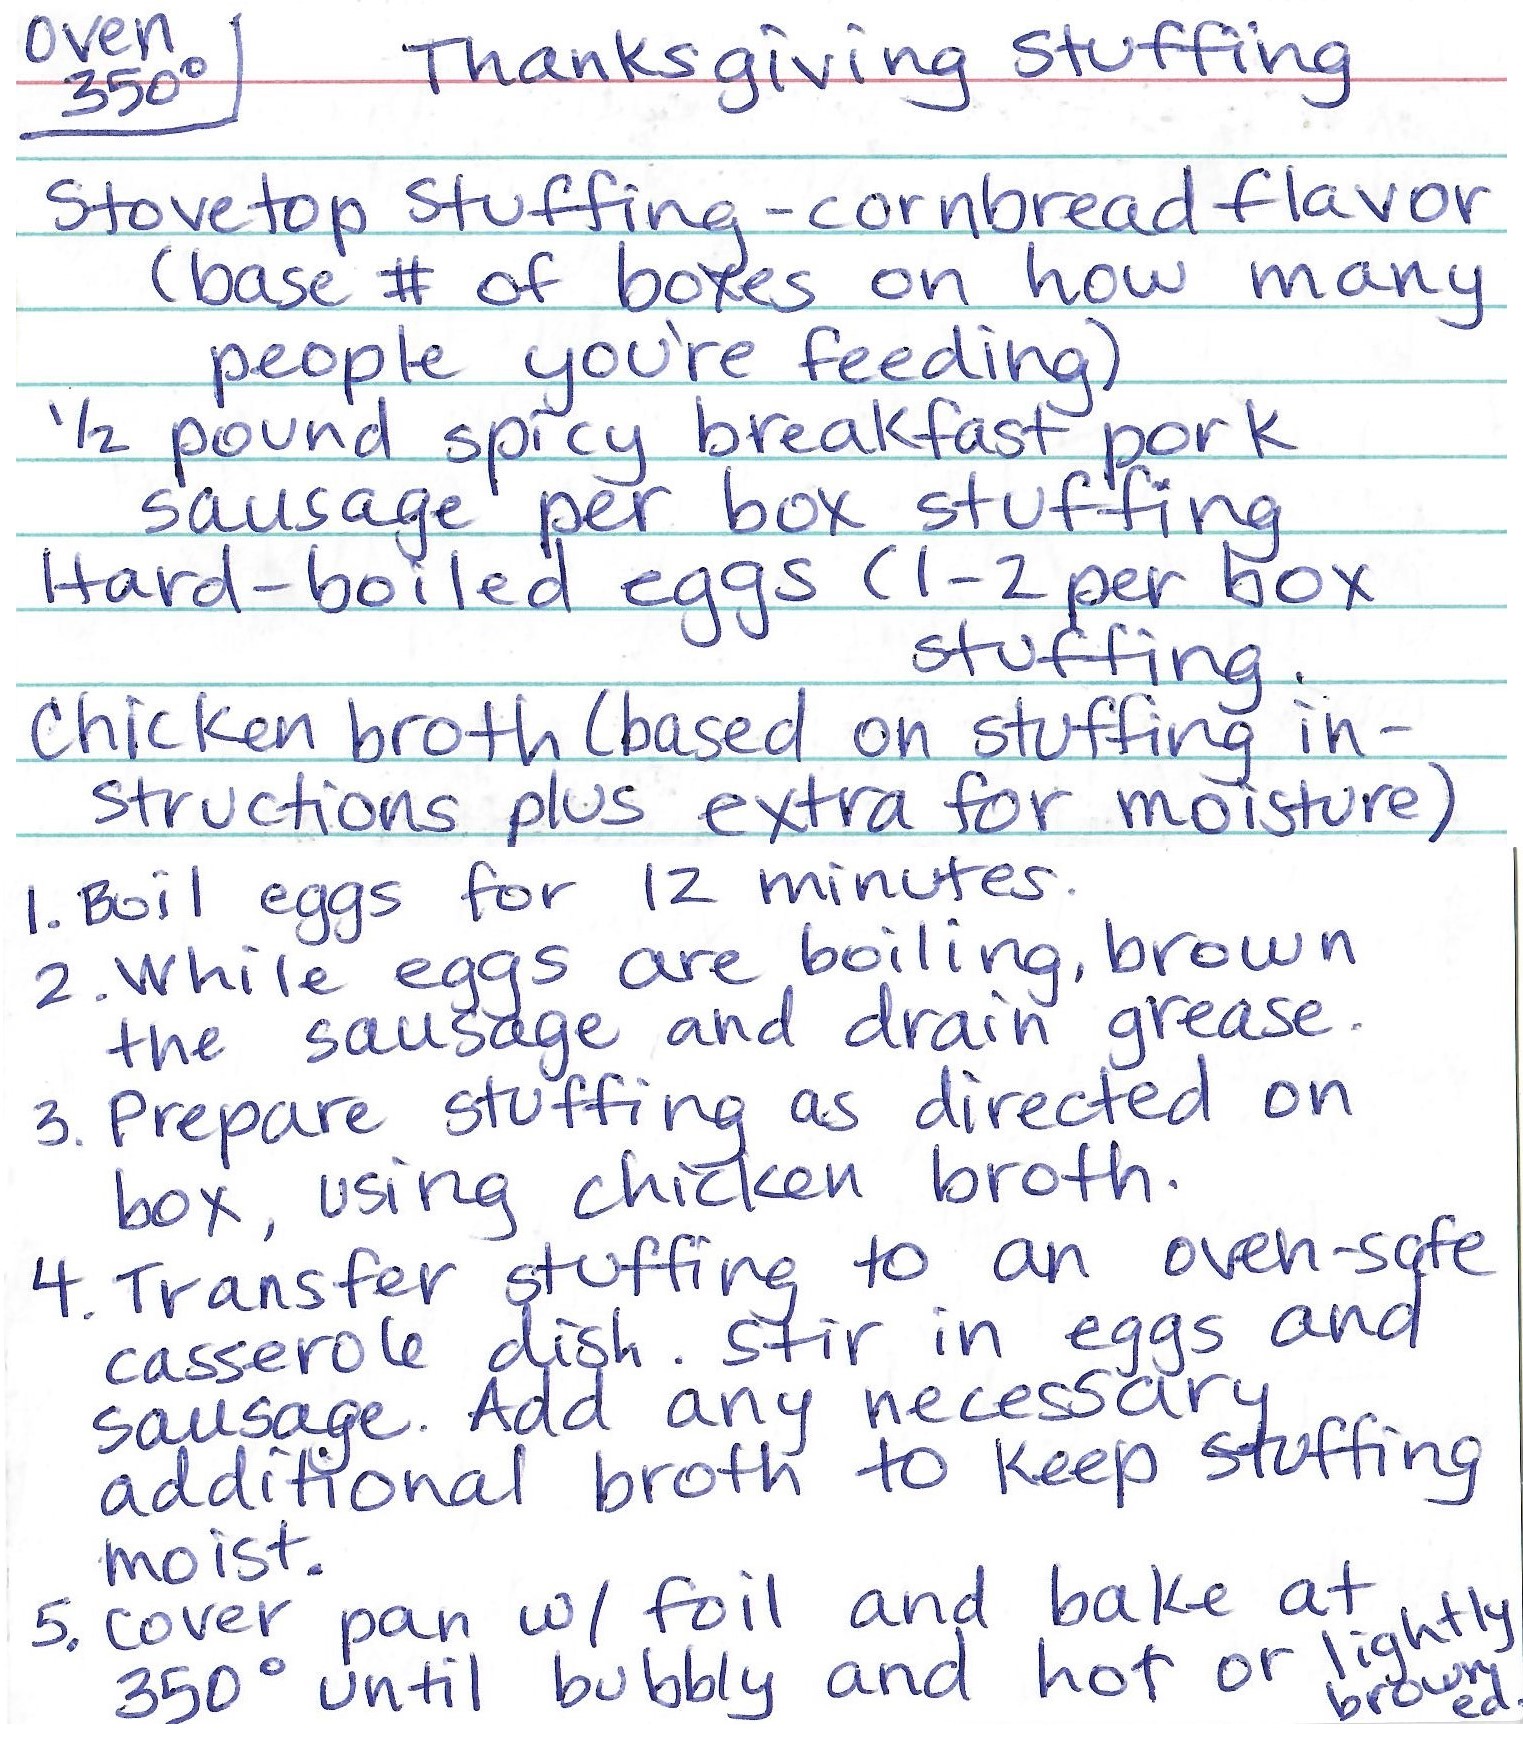 Oven
350°
Thanksgiving Stuffing
Stovetop Stuffing - cornbread flavor
(base # of boxes on how many
people you're feeding)
1/2 pound spicy breakfast pork
sausage per box stuffing
Hard-boiled eggs (1-2 per box
stuffing.
Chicken broth (based on stuffing in-
structions plus extra for moisture)
1. Boil eggs for 12 minutes.
2. While eggs are boiling, brown
the sausage and drain grease.
3. Prepare stuffing as directed on
box, using chicken broth.
4. Transfer stuffing to an oven-safe
casserole dish. Stir in eggs and
sausage. Add any necessary
additional broth to keep stuffing
moist.
5. Cover pan w/ foil and bake at
350° until bubbly and hot or lightly
browned.